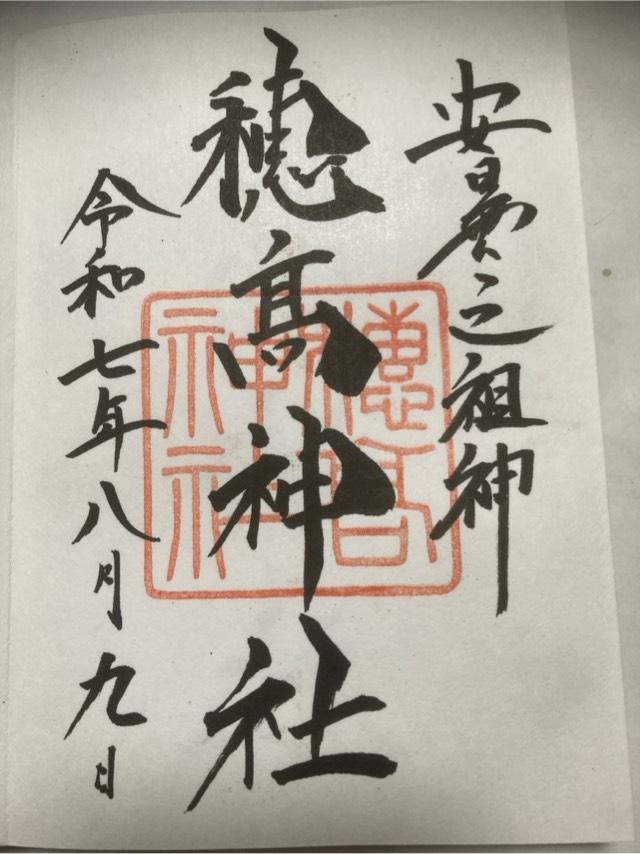 安曇之祖神
穂髙神社
令和七年八月九日
穂高
神社